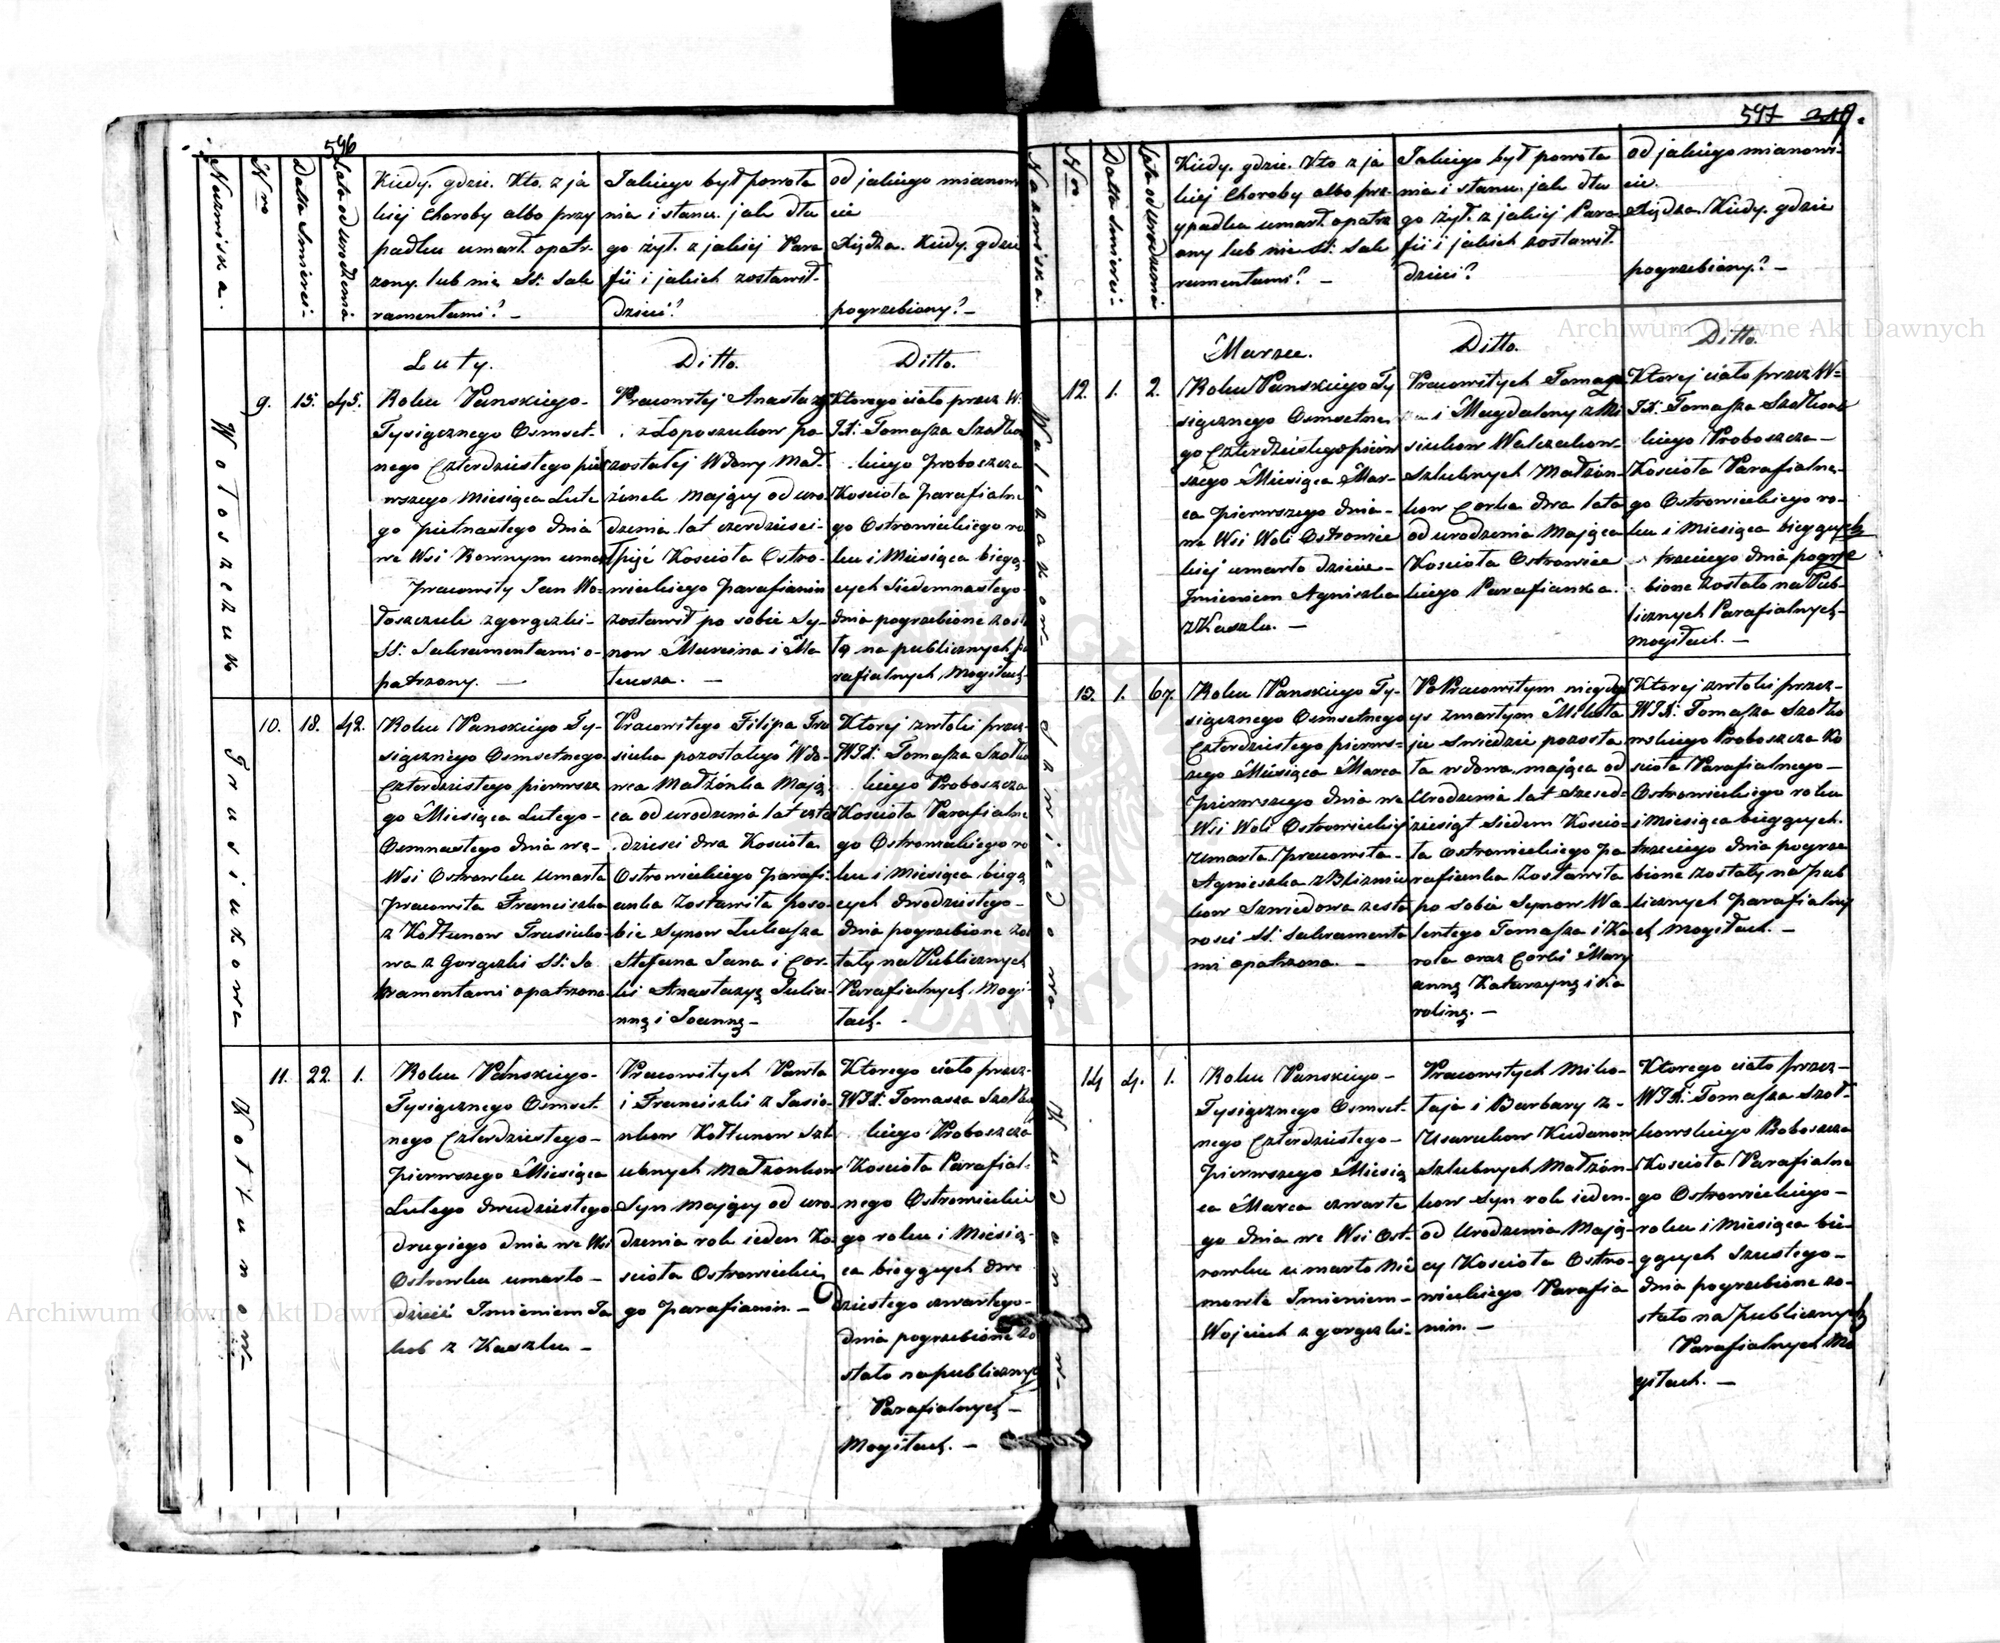 596
Nazwiska.
Nro
Datta Smierci.
Lata od urodzenia
Kiedy. gdzie. Kto. z ja
kiej Choroby albo przy
padku umarł. opatr-
zony. lub nie SS: Sak
ramentami? —
Jakiego był powoła
nia i stanu. jak dłu
go żył. z jakiej Para
fii i jakich zostawił
dzieci?
od jakiego mianowi
cie
Xiędza. Kiedy. gdzie
pogrzebiony? —
Luty.
Ditto.
Ditto.
Wołoszczuk
9.
15.
45.
Roku Panskiego.
Tysiącznego Osmset-
nego Czterdziestego pier
wszego Miesiąca Lute
go pietnastego dnia
we Wsi Rownym umar
Pracowity Jan Wo-
łoszczuk zgorączki-
SS: Sakramentami o-
patrzony. —
Pracowitej Anastazy
z Łoposzukow po
zostałej Wdowy Mał-
żonek mający od uro
dzenia lat czerdziesci-
Pięć Kościoła Ostro-
wieckiego Parafianin
zostawił po sobie Sy-
now Marcina i Ma
teusza. —
Ktorego ciało przez W.
JX: Tomasza Szołkow
kiego Proboszcza
Kościoła parafialne
go Ostrowieckiego ro
ku i Miesiąca biegą-
cych Siedemnastego
dnia pogrzebione zost
łą na publicznych pa
rafialnych Mogiłach
Grusiukowe
10.
18.
42.
Roku Panskiego Ty-
siącznego Osmsetnego
Czterdziestego pierwsze
go Miesiąca Lutego-
Osmnastego dnia we-
Wsi Ostrowku umarła
Pracowita Franciszka
z Kołtunow Trusiuko-
wa z Gorączki SS: Sa
kramentami opatrzona
Pracowitego Filipa Tru
siuka pozostałego Wdo-
wca Małżonka Mają-
ca od urodzenia lat czte
dziesci dwa Kościoła
Ostrowieckiego Parafi-
anka Zostawiła poso-
bie Synow Łukasza
Stefana Jana i Cor-
ki Anastazyą Julia-
nną i Joanną —
Ktorej zwłoki przez-
WJX: Tomasza Szołko
kiego Proboszcza
Kościoła Parafialne
go Ostrowieckiego ro
ku i Miesiąca biegą
cych dwodziestego-
dnia pogrzebione zos
tały na Publicznych
Parafialnych Mogi-
łach. -
Kołtunow
11.
22.
1.
Roku Panskiego-
Tysiącznego Osmset-
nego Czterdziestego-
Pierwszego Miesiąca
Lutego dwudziestego
drugiego dnia we Wsi
Ostrowku umarło-
dziecie Imieniem Ja
kob z Kaszlu —
Pracowitych Pawła
i Franciszki z Jasio-
nkow Kołtunow Szl
ubnych małzonkow
Syn mający od uro
dzenia rok ieden Ko
scioła Ostrowieckie
go Parafianin. —
Ktorego ciało przez-
WJX: Tomasza Szołko
kiego Proboszcza
Kościoła Parafial-
nego Ostrowieckie
go roku i Miesią-
ca bieggcych dwo
dziestego czwartego-
dnia pogrzebione zo
stało na publicznych
Parafialnych-
Mogiłach. —
597
Nazwiska.
Nro
Datta Smierci-
Lata od Urodzenia
Kiedy. gdzie. Kto z ja
kiej Choroby albo prz-
ypadku umarł. opatrz
ony lub nie SS: Sak
ramentami? —
Jakiego był powoła
nia i stanu. jak dłu
go żył. z jakiej Para-
fii i jakich zostawił.
dzieci?
od jakiego mianowi-
cie.
Xiędza. Kiedy. gdzie
pogrzebiony? —
Marzec.
Ditto.
Ditto.
Walczakow-
12.
1.
2.
Roku Panskiego Ty
siącznego Osmsetne
go Czterdziestego pierw
szego Miesiąca Mar-
ca Pierwszego dnia-
we Wsi Woli Ostrowiec
kiej umarło dziecie-
Imieniem Agnieszka
z Kaszlu. —
Pracowitych Tomasz
i Magdaleny z
siukow Walczakow-
Szlubnych Małżon-
kow Corka dwa lata
od urodzenia Mająca
Kościoła Ostrowiec
kiego Parafianka.
Ktorej ciało przez W-
JX: Tomasza Szołkows
kiego Proboszcza —
Kościoła Parafialne-
go Ostrowieckiego ro-
ku i Miesiąca bieggcych
trzeciego dnia pogrze
bione zostało na Pub-
licznych Parafialnych-
mogiłach. —
Szwiedowa
13.
1.
67.
Roku Panskiego Ty-
siącznego Osmsetnego
Czterdziestego pierws-
zego Miesiąca Marca
Pierwszego dnia we
Wsi Woli Ostrowieckiej
Zmarła Pracowita-
Agnieszka z Blizniu
kow Szwiedowa zesta
rosci SS: Sakramenta
mi opatrzona. —
Po Pracowitym niegdy
ys zmarłym Mikoła
ju Swiedzie pozosta
ła wdowa. mająca od
Urodzenia lat Szesd-
ziesiąt Siedem Koscio-
ła Ostrowieckiego Pa
rafianka Zostawiła
po Sobie Synow Wa-
lentego Tomasza i Ka
rola oraz Corki Mary
anną Katarzyną i Ka
roliną. —
Ktorej zwłoki przez-
WJX: Tomasza Szołko
wskiego Proboszcza Ko
scioła Parafialnego —
Ostrowieckiego roku
i Miesiąca bieggcych.
trzeciego dnia pogrze
bione zostały na Pub
licznych Parafialny
ch Mogiłach. —
Kudanow-
14
4.
1.
Roku Panskiego —
Tysiącznego Osmset-
nego Czterdziestego —
Pierwszego Miesią
ca Marca czwarte
go dnia we Wsi Ost-
rowku umarło Nie
mowle Imieniem-
Wojciech z gorączki-
Pracowitych Miko-
łaja i Barbary z-
Usarukow Kudanow
Szlubnych Małżon-
kow Syn rok ieden-
od Urodzenia Mają-
cy Kościoła Ostro-
wieckiego Parafia
nin. —
Ktorego ciało przez —
WJX: Tomasza Szoł-
kowskiego Proboszcza
Kościoła Parafialne
go Ostrowieckiego —
roku i Miesiąca bie-
ggcych Szustego —
dnia pogrzebione zo-
stało na Publicznych
Parafialnych Mo
giłach. —
Archiwum Główne Akt Dawnych
Archiwum Główne Akt Dawnych